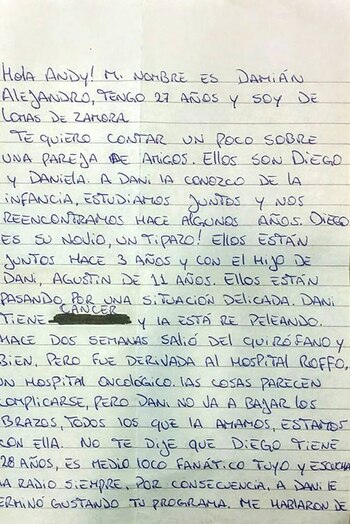 Hola Andy! Mi nombre es Damián
Alejandro, tengo 27 años y soy de
Lomas de Zamora
Te quiero contar un poco sobre
una pareja de amigos. Ellos son Diego
y Daniela. A Dani la conozco de la
infancia, estudiamos juntos y nos
reencontramos hace algunos años. Diego
es su novio, un tipazo! Ellos están
juntos hace 3 años y con el hijo de
Dani, Agustin de 11 años. Ellos están
pasando por una situación delicada. Dani
tiene cáncer y la está re peleando.
Hace dos semanas salió del quirófano y
bien. Pero fue derivada al Hospital Roffo,
un hospital oncológico. Las cosas parecen
complicarse, pero Dani no va a bajar los
brazos, todos los que la amamos, estamos
con ella. No te dije que Diego tiene
28 años, es medio loco fanático tuyo y escucha
la radio siempre. Por consecuencia, a Dani le
terminó gustando tu programa. Me hablaron de